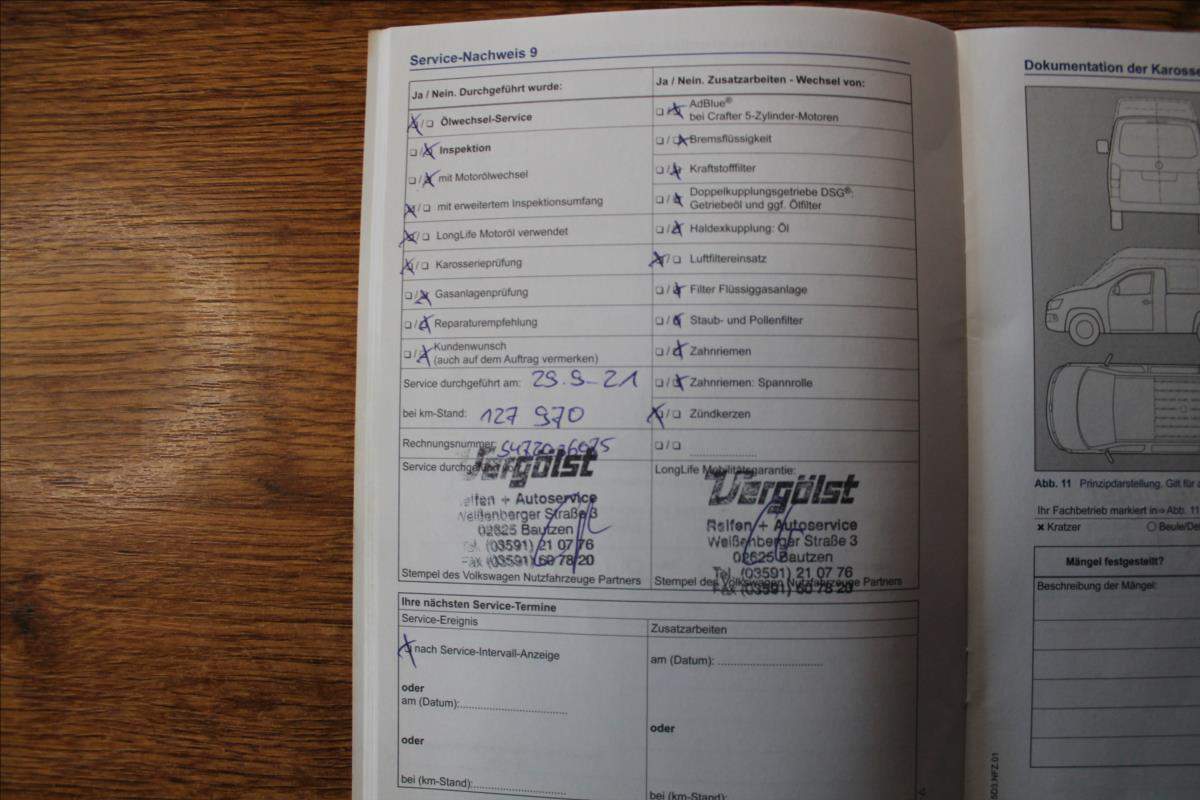 Service-Nachweis 9
Ja / Nein. Durchgeführt wurde:
☒/☐ Ölwechsel-Service
☐/☒ Inspektion
☐/☒ mit Motorölwechsel
☒/☐ mit erweitertem Inspektionsumfang
☒/☐ LongLife Motoröl verwendet
☒/☐ Karosserieprüfung
☐/☒ Gasanlagenprüfung
☐/☒ Reparaturempfehlung
☐/☒ Kundenwunsch
(auch auf dem Auftrag vermerken)
Service durchgeführt am: 29.9-21
bei km-Stand: 127 970
Rechnungsnummer:
Service
Vergölst
Reifen + Autoservice
Weißenberger Straße 3
02625 Bautzen
Tel. (03591) 21 07 76
Fax (03591) 60 78 20
Stempel des Volkswagen Nutzfahrzeuge Partners
Ja / Nein. Zusatzarbeiten - Wechsel von:
☐/☒ AdBlue®
bei Crafter 5-Zylinder-Motoren
☐/☒ Bremsflüssigkeit
☐/☒ Kraftstofffilter
☐/☒ Doppelkupplungsgetriebe DSG®:
Getriebeöl und ggf. Ölfilter
☐/☒ Haldexkupplung: Öl
☒/☐ Luftfiltereinsatz
☐/☒ Filter Flüssiggasanlage
☐/☒ Staub- und Pollenfilter
☐/☒ Zahnriemen
☐/☒ Zahnriemen: Spannrolle
☒/☐ Zündkerzen
☐/☐
LongLife Mobilitätsgarantie:
Vergölst
Reifen + Autoservice
Weißenberger Straße 3
02625 Bautzen
Tel. (03591) 21 07 76
Fax (03591) 60 78 20
Stempel des Volkswagen Nutzfahrzeuge Partners
Ihre nächsten Service-Termine
Service-Ereignis
☒ nach Service-Intervall-Anzeige
oder
am (Datum):
oder
bei (km-Stand):
Zusatzarbeiten
am (Datum):
oder
bei (km-Stand):
Dokumentation der Karosse
Abb. 11 Prinzipdarstellung. Gilt für a
Ihr Fachbetrieb markiert in ⇒ Abb. 11
✖ Kratzer
○ Beule/De
Mängel festgestellt?
Beschreibung der Mängel:
503.NFZ.01